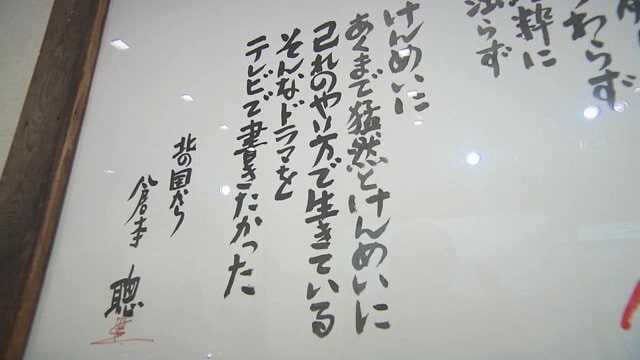 わらず
粋に
らず
けんめいに
あくまで猛然とけんめいに
己れのやり方で生きている
そんなドラマを
テレビで書きたかった
北の国から
倉本 聰